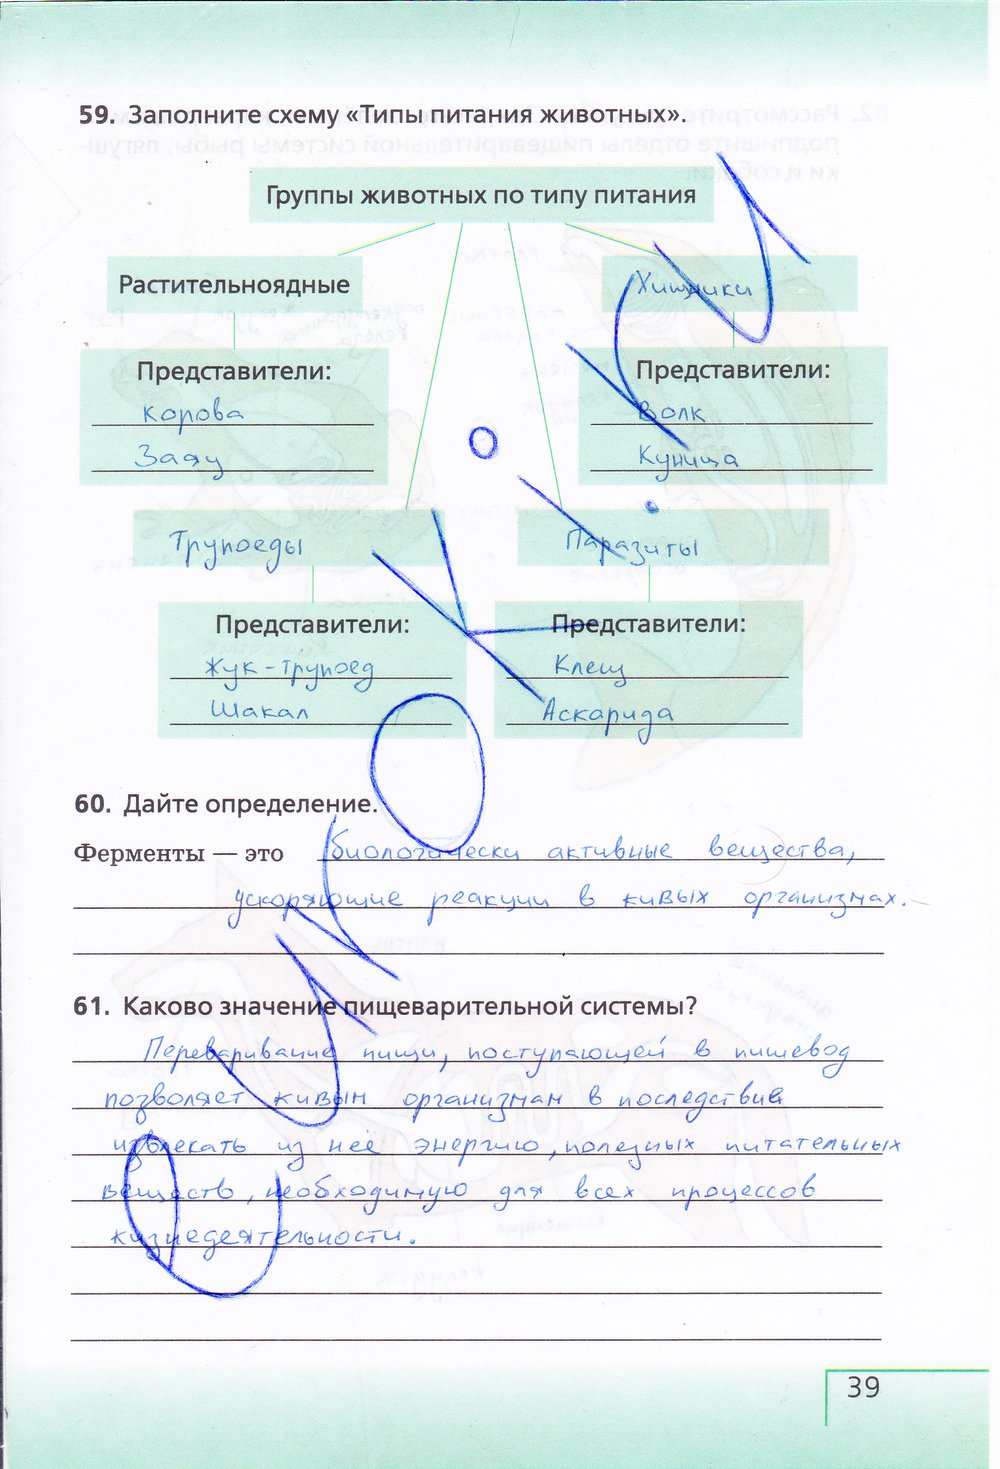 59. Заполните схему «Типы питания животных».
Группы животных по типу питания
Растительноядные
Хищники
Представители:
Корова
Заяц
Представители:
Волк
Куница
Трупоеды
Паразиты
Представители:
Жук-трупоед
Шакал
Представители:
Клещ
Аскарида
60. Дайте определение.
Ферменты — это биологически активные вещества,
ускоряющие реакции в живых организмах.
61. Каково значение пищеварительной системы?
Переваривание пищи, поступающей в пишевод
позволяет живым организмам в последствие
извлекать из неё энергию, полезных питательных
веществ, необходимую для всех процессов
жизнедеятельности.
39